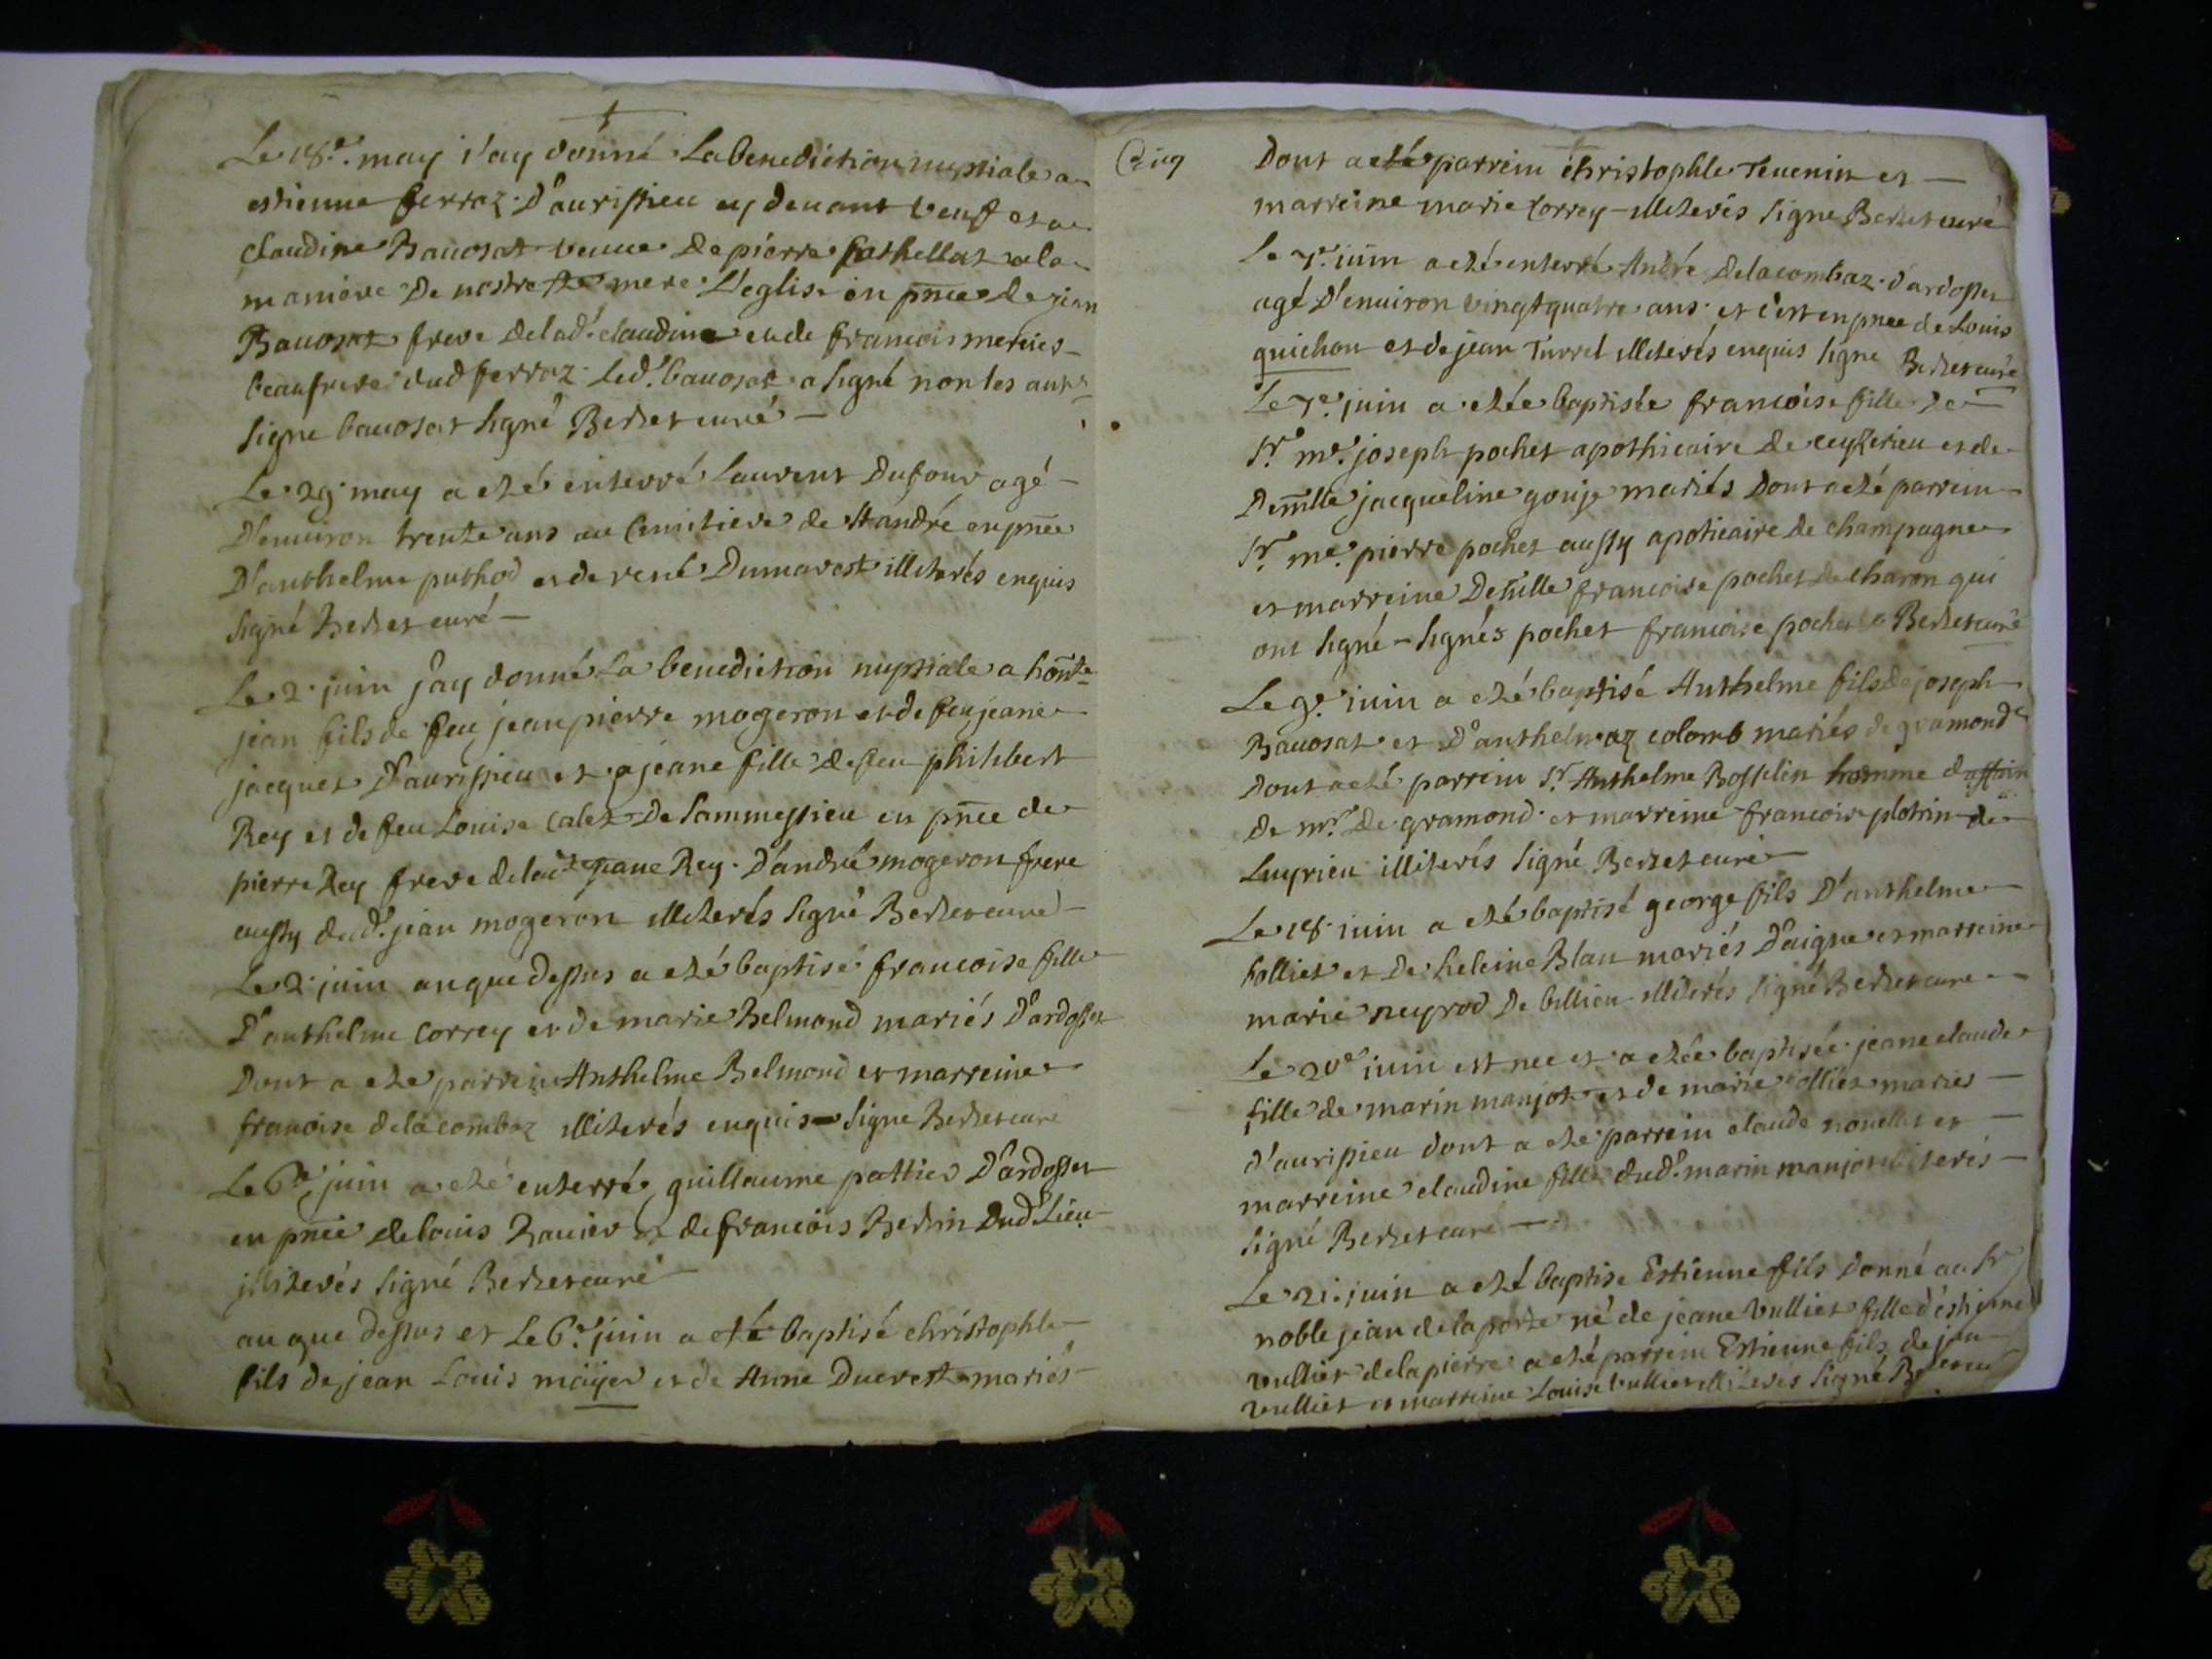 Le 18e. may i'ay donné La benediction nuptiale a
estienne ferraz D'aurissieu cy devant veuf et a
claudine Bauosat veuue de pierre Cathellat a la
maniere De nostre Ste mere L'eglise en pnce de jean
Bauosat frere de lad. claudine et de francois mercier
beaufrere dud ferraz Led. bauosat a signé non les autrs
signe bauosat signé Berzet curé
Le 29 may a eté enterré Laurent Dufour agé
D'enuiron trente ans au Cimitiere de St andré en pnce
D'anthelme puthod et de rené Dumarest illiterés enquis
signé Berzet curé
Le 2 juin j'ay donné La benediction nuptiale a honte
jean fils de feu jean pierre mogeron et de feu jeane
jacquet D'aurissieu et a jeane fille de feu philibert
Rey et de feu Louise Calez De sammeyrieu en pnce de
pierre Rey frere de lade jeane Rey D'andré mogeron frere
aussy dud. jean mogeron illiterés signé Berzet curé
Le 2 juin an que dessus a eté baptisé francoise fille
D'anthelme Correy et de marie Belmond mariés D'ardosset
Dont a eté parrein Anthelme Belmond et marreine
francoise delacombaz illiterés enquis signe Berzet curé
Le 6e juin a eté enterré guillaume pattier D'ardosset
en pnce de louis Rauier et de francois Berlin Dud Lieu
illiterés signé Berzet curé
an que dessus et Le 6e. juin a eté baptisé christophle
fils de jean Louis mäyer et de Anne Ducrest mariés
Dont a eté parrein christophle Teuenin et
marreine marie Correy illiterés signe Berzet curé
Le 7e. iuin a eté enterré André Delacombaz d'ardosset
agé D'enuiron vingt quatre ans et c'est en pnce de Louis
guichon et de jean Turrel illiterés enquis signe Berzet curé
Le 7e. juin a etée baptisée francoise fille de
Sr. me. joseph pochet apothicaire de ceyzerieu et de
Demlle jacqueline gouje mariés Dont a eté parrein
Sr. me. pierre pochet aussy apoticaire de champagne
et marreine Demlle francoise pochet de charon qui
ont signé signés pochet francoise pochet Berzet curé
Le 9e. iuin a eté baptisé Anthelme fils de joseph
Bauosat et D'anthelmaz colomb mariés de gramond
Dont a eté parrein Sr. Anthelme Rosselin homme d'affaire
de mr. de gramond et marreine francoise plotrin de
Luyrieu illiterés signé Berzet curé
Le 18 iuin a eté baptisé george fils D'anthelme
holliet et De heleine Blan mariés D'aigne et marreine
marie neyrod De billieu illiterés signé Berzet curé
Le 20e iuin est nee et a etée baptisée jeane claude
fille de marin manjot et de marie olliet mariés
d'aurissieu dont a eté parrein claude nouellet et
marreine claudine fille dud. marin manjot illiterés
signé Berzet curé
Le 21 juin a eté baptise Estienne fils Donné au Sr
noble jean de la porte né de jeane vulliet fille d'estienne
vulliet de la pierre a eté parrein Estienne fils de jean
vulliet et marreine Louise vulliet illiterés signé Berzet curé